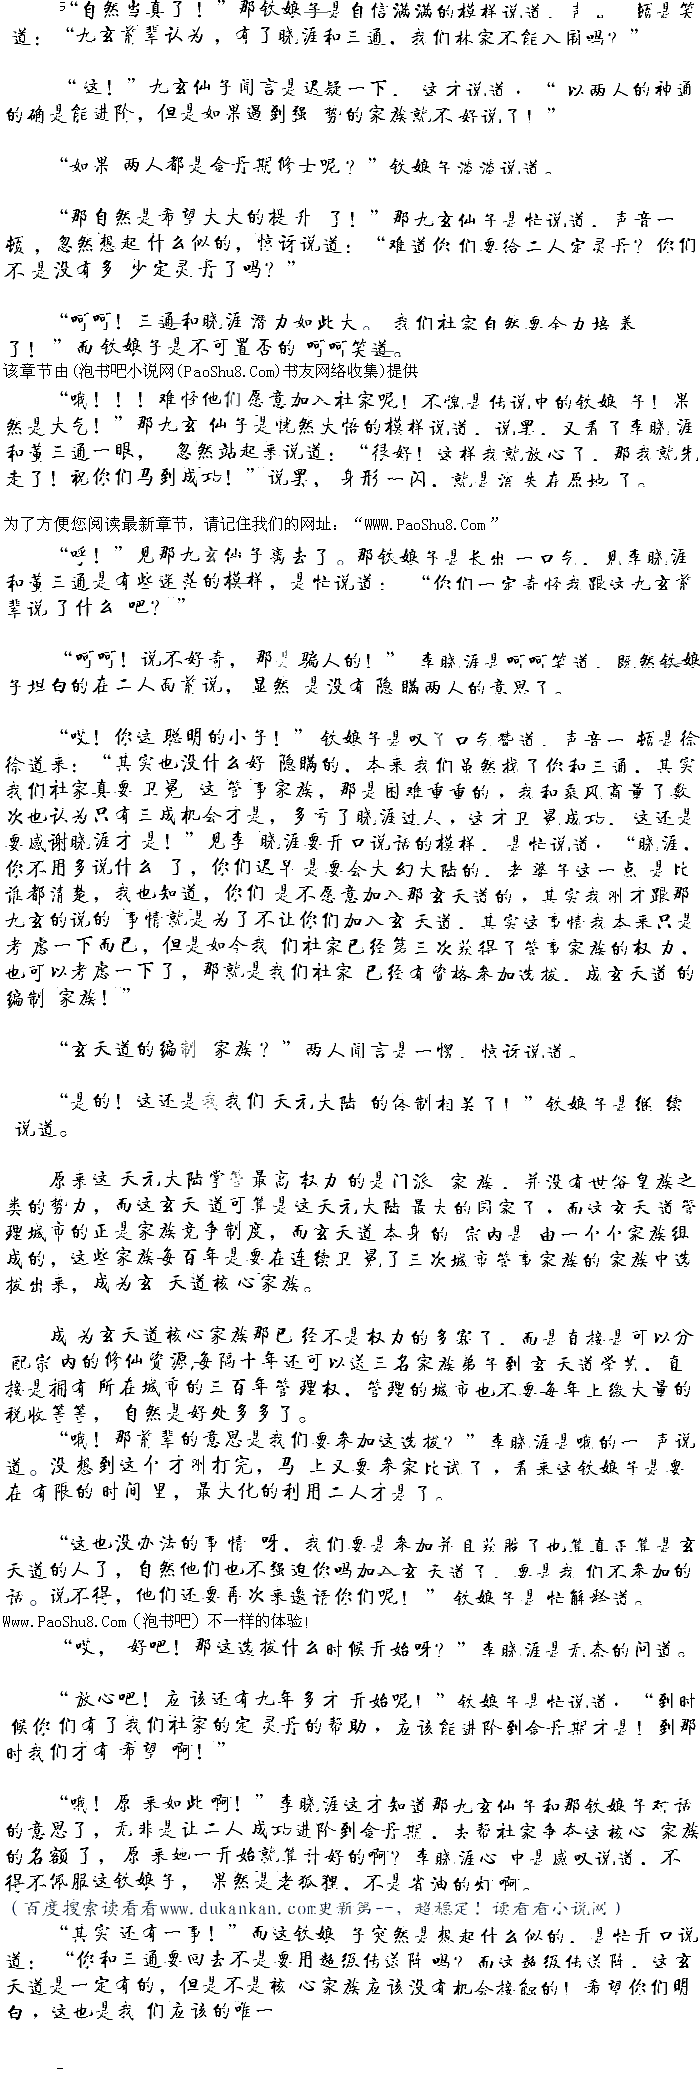 “自然当真了！”那钦娘子是自信满满的模样说道．声 。 顿是笑
道：“九玄前辈认为，有了晓涯和三通．我们林家不能入围吗？”
“这！”九玄仙子闻言是迟疑一下．这才说道，“以两人的神通
的确是能进阶，但是如果遇到强 势的家族就不好说了！”
“如果 两人都是金丹期修士呢？”钦娘子淡淡说道。
“那自然是希望大大的提升 了！”那九玄仙子是忙说道．声音一
顿，忽然想起什么似的，惊讶说道：“难道你们要给二人定灵丹？你们
不是没有多 少定灵丹了吗？”
“呵呵！三通和晓涯潜力如此大。 我们社家自然要全力培养
了！”而钦娘子是不可置否的 呵呵笑道。
该章节由(泡书吧小说网(PaoShu8.Com)书友网络收集)提供
“哦！！！难怪他们愿意加入社家呢！不愧是传说中的钦娘 子！果
然是大气！”那九玄 仙子是恍然大悟的模样说道．说罢．又看了李晓涯
和黄三通一眼， 忽然站起来说道：“很好！这样我就放心了．那我就先
走了！祝你们马到成功！”说罢， 身形一闪．就是消失在原地了。
为了方便您阅读最新章节，请记住我们的网址：“WWW.PaoShu8.Com”
“呼！”见那九玄仙子离去了。那钦娘子是长出一口气．见李晓涯
和黄三通是有些迷茫的模样，是忙说道： “你们一定奇怪我跟这九玄前
辈说了什么 吧？”
“呵呵！说不好奇，那是骗人的！” 李晓涯是呵呵笑道．既然钦娘
子坦白的在二人面前说，显然 是没有隐瞒两人的意思了。
“哎！你这聪明的小子！”钦娘子是叹了口气赞道．声音一 顿是徐
徐道来：“其实也没什么好 隐瞒的．本来我们虽然找了你和三通．其实
我们社家真要卫冕 这管事家族，那是困难重重的，我和乘风商量了数
次也认为只有三成机会才是，多亏了晓涯过人，这才卫冕成功．这还是
要感谢晓涯才是！”见李 晓涯要开口说话的模样．是忙说道，“晓涯．
你不用多说什么 了，你们迟早是要会大幻大陆的．老婆子这一点是比
谁都清楚，我也知道，你们是不愿意加入那玄天道的，其实我刚才跟那
九玄的说的 事情就是为了不让你们加入玄 天道．其实这事情我本来只是
考 虑一下而已，但是如今我 们社家已经第三次获得了管事家族的权力．
也可以考虑一下了，那就是我们社家 已经有资格参加选拔．成玄天道的
编制 家族！”
“玄天道的编制 家族？”两人闻言是一愣．惊讶说道。
“是的！这还是我我们天元大陆 的体制相关了！”钦娘子是继 续
说道。
原来这天元大陆掌管最高权力的是门派 家族．并没有世俗皇族之
类的势力，而这玄天 道可算是这天元大陆最大的国家了，而这玄天道管
理城市的正是家族竞争制度，而玄天道本身的 宗内是 由一个个家族组
成的，这些家族每百年是要在连续卫 冕了三次城市管事家族的家族中选
拔出来，成为玄 天道核心家族。
成 为玄天道核心家族那已经不是权力的多寡了．而是直接是可以分
配宗内的修仙资源,每隔十年还可以送三名家族弟子到玄天道学艺．直
接是拥有所在城市的三百年管理权．管理的城市也不要每年上缴大量的
税收等等， 自然是好处多多了。
“哦！那前辈的意思是我们要参加这选拔？”李晓涯是哦的一 声说
道。没想到这个才刚打完，马 上又要参家比试了，看来这钦娘子是要
在有限的时间里，最大化的利用二人才是了。
“这也没办法的事情 呀．我们要是参加并且获胜了也算真正算是玄
天道的人了，自然他们也不强迫你吗加入玄天道了．要是我们不参加的
话。说不得，他们还要再次来邀请你们呢！” 钦娘子是忙解释道。
Www.PaoShu8.Com（泡书吧）不一样的体验!
“哎， 好吧！那这选拔什么时候开始呀？”李晓涯是无奈的问道。
“放心吧！应该还有九年多才开始呢！”钦娘子是忙说道，“到时
候你们有了我们社家的定灵丹的帮助，应该能进阶到金丹期才是！到那
时我们才有希望 啊！”
“哦！原来如此啊！”李晓涯这才知道那九玄仙子和那钦娘子对话
的意思了，无非是让二人成功进阶到金丹期．去帮社家争夺这核心 家族
的名额了，原来她一开始就算计好的啊？李晓涯心 中是感叹说道．不
得不佩服这钦娘子， 果然是老狐狸．不是省油的灯啊。
（百度搜索读看看www.dukankan.com更新第--，超稳定！读看看小说网）
“其实还有一事！”而这钦娘 子突然是想起什么似的．是忙开口说
道：“你和三通要回去不是要用超级传送阵吗？而这超级传送阵．这玄
天道是一定有的，但是不是核 心家族应该没有机会接触的！希望你们明
白，这也是我 们应该的唯一